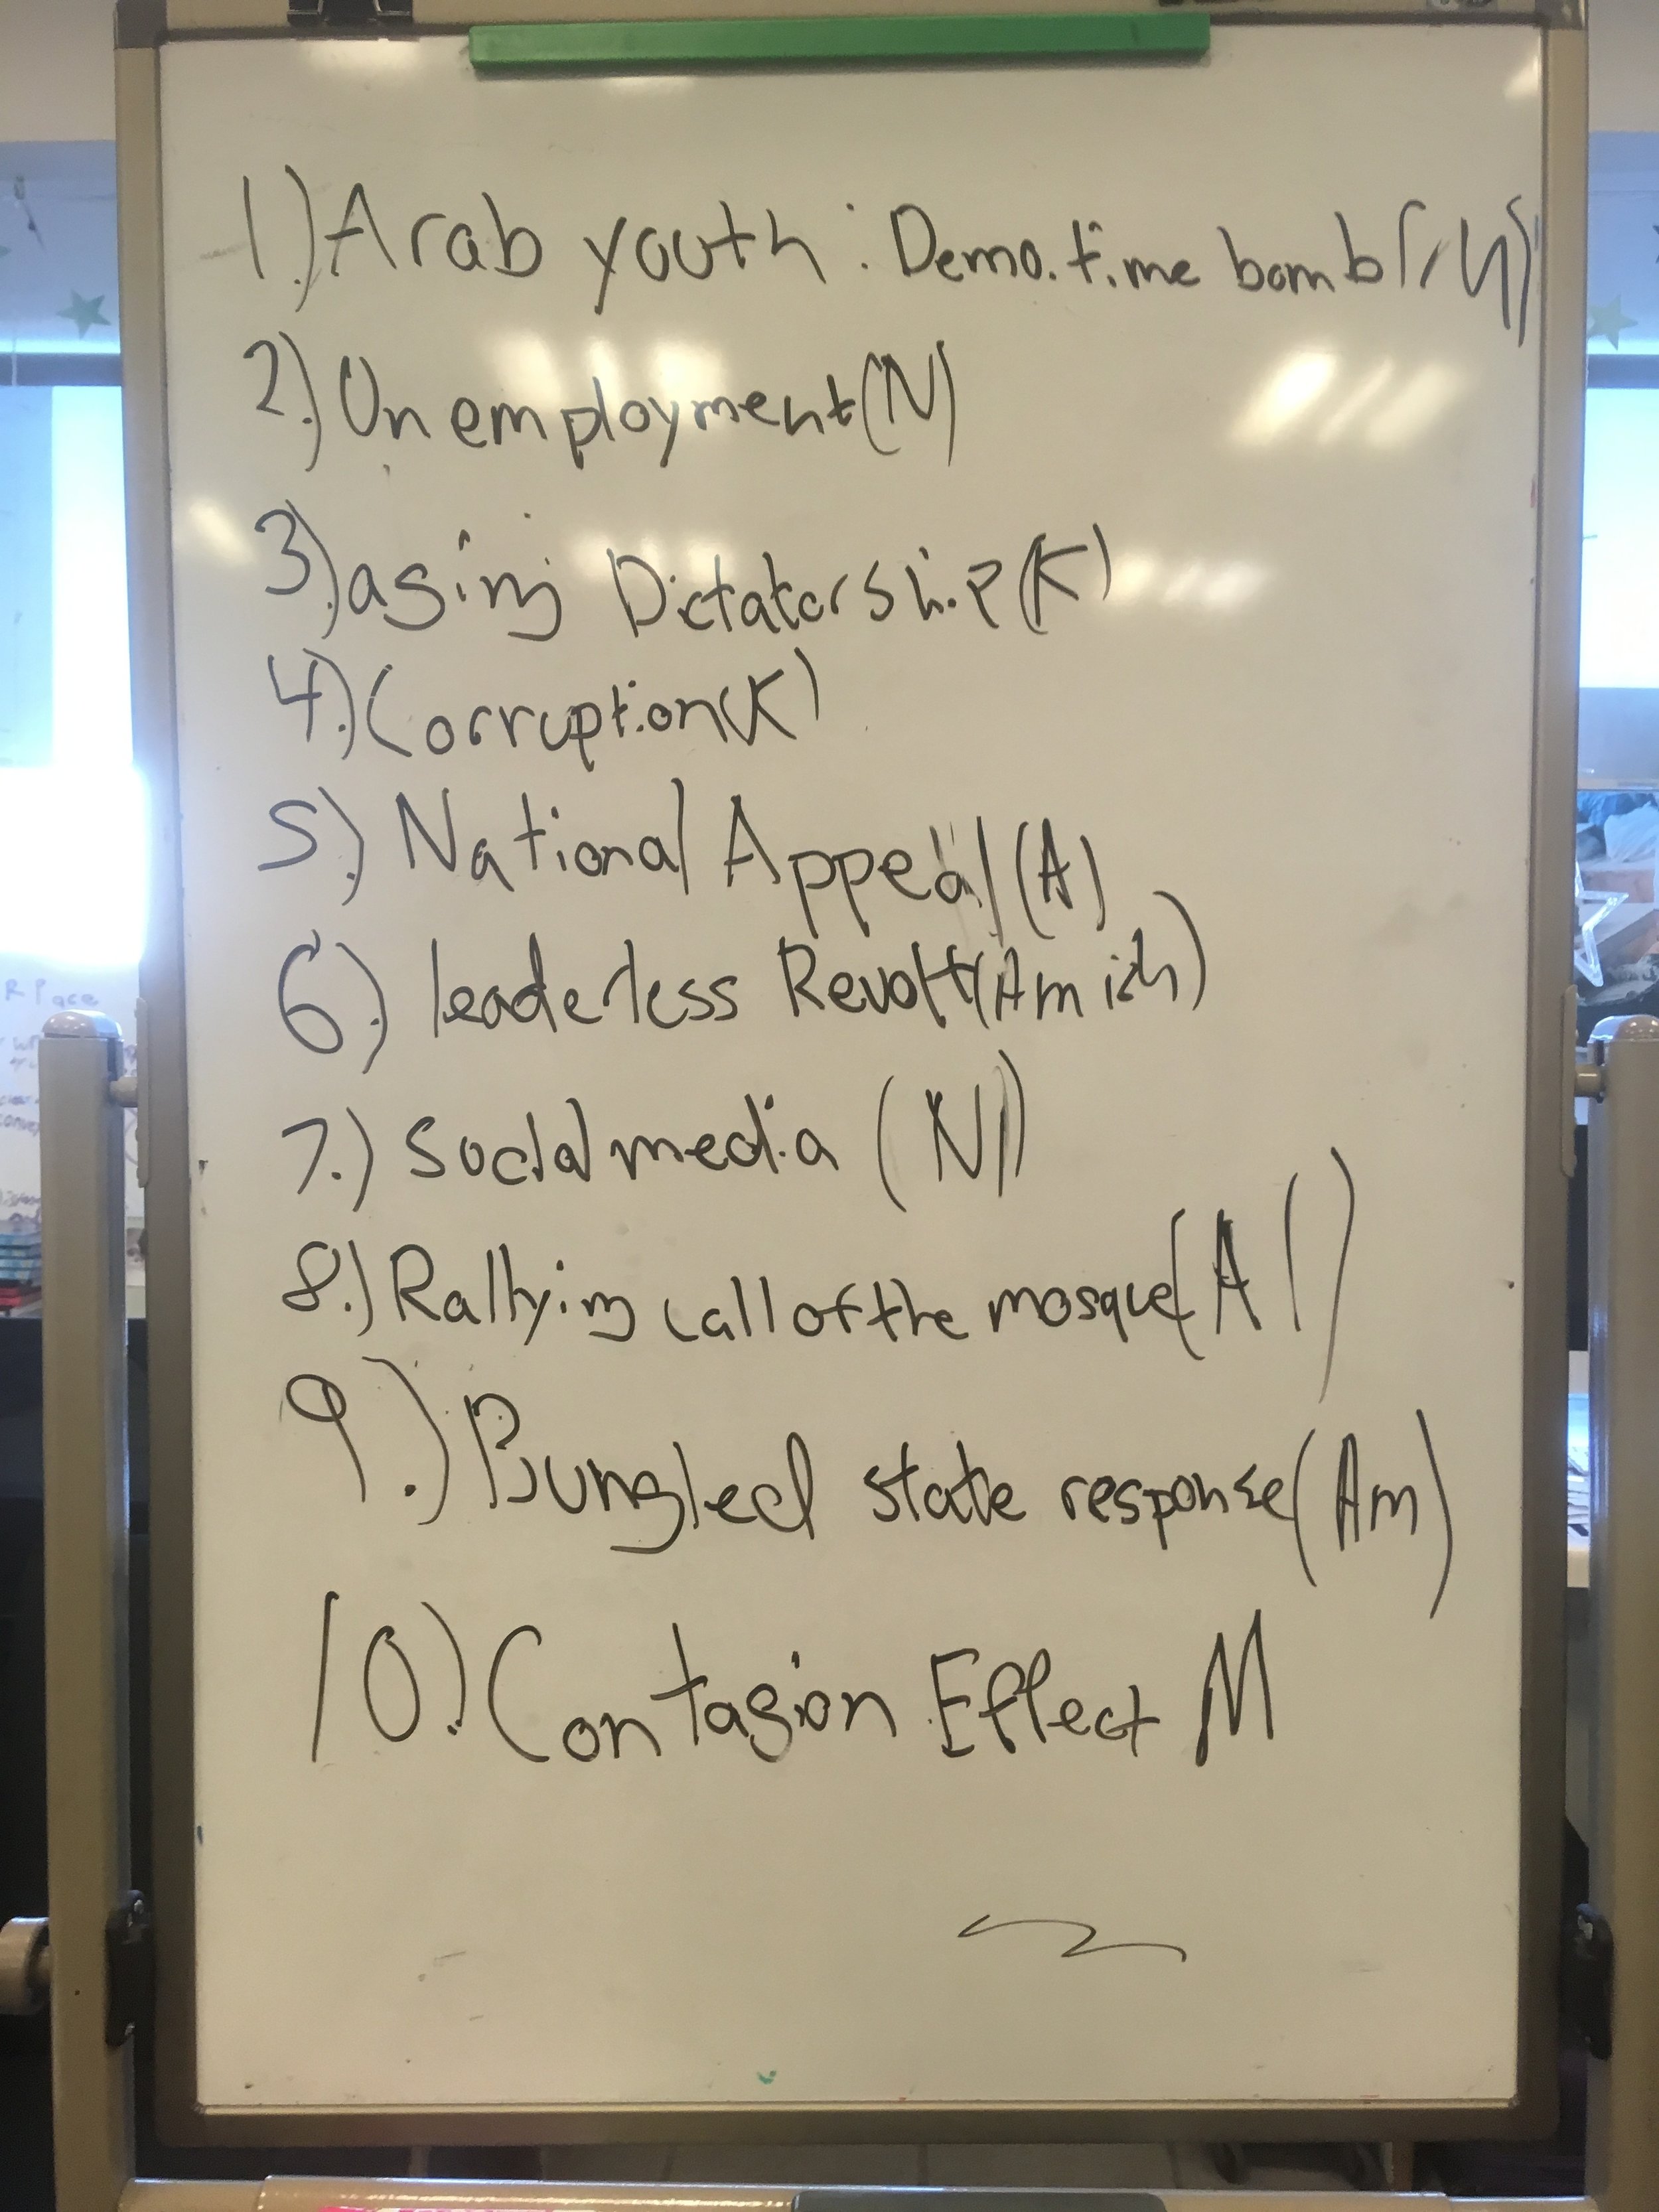 1.) Arab youth: Demo. time bomb
2.) Unemployment (N)
3.) aging Dictatorship (K)
4.) Corruption (K)
5.) National Appeal (A)
6.) leaderless Revolt (Amish)
7.) Social media (N)
8.) Rallying call of the mosque (Al)
9.) Bungled state response (Am)
10.) Contagion Effect M